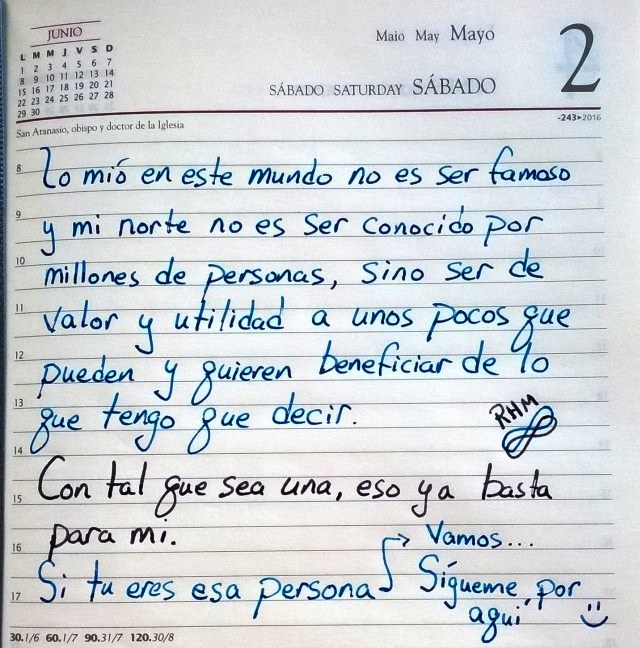 JUNIO
L M M J V S D
1 2 3 4 5 6 7
8 9 10 11 12 13 14
15 16 17 18 19 20 21
22 23 24 25 26 27 28
29 30
Maio May Mayo
2
SÁBADO SATURDAY SÁBADO
-243>2016
San Atanasio, obispo y doctor de la Iglesia
8 Lo mió en este mundo no es ser famoso
9 y mi norte no es ser conocido por
10 millones de personas, sino ser de
11 valor y utilidad a unos pocos que
12 pueden y quieren beneficiar de lo
13 que tengo que decir.
RHM
14
15 Con tal que sea una, eso ya basta
16 para mi.
17 Si tu eres esa persona → Vamos...
Sígueme, por
aquí
30.1/6 60.1/7 90.31/7 120.30/8